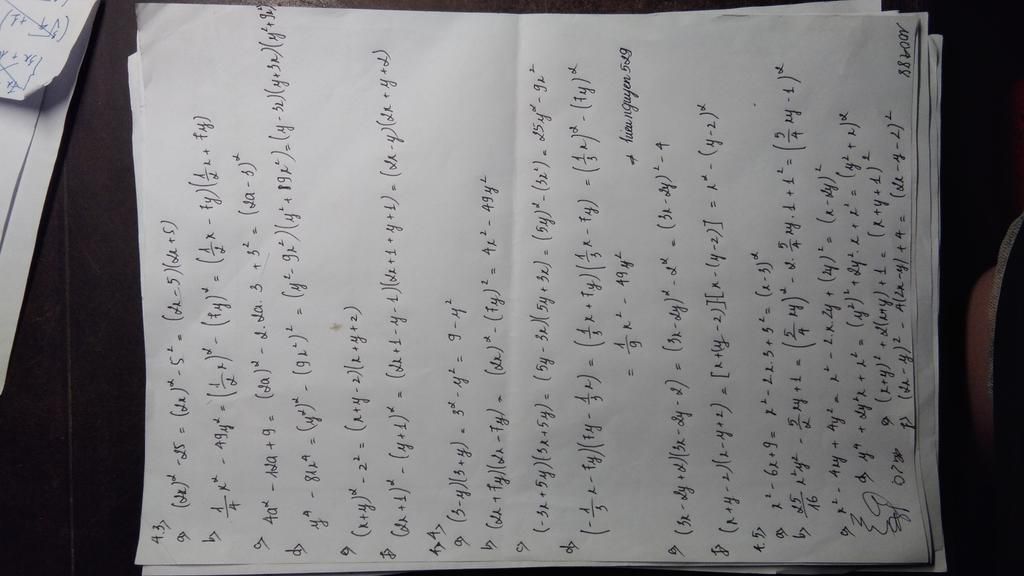 4.3,
a, (2x)² - 25 = (2x)² - 5² = (2x-5)(2x+5)
b, 1/4 x² - 49y² = (1/2 x)² - (7y)² = (1/2 x - 7y)(1/2 x + 7y)
c, 4a² - 12a + 9 = (2a)² - 2.2a.3 + 3² = (2a-3)²
d, y⁴ - 81x⁴ = (y²)² - (9x²)² = (y² - 9x²)(y² + 89x²) = (y-3x)(y+3x)(y²+9x²)
e, (x+y)² - 2² = (x+y-2)(x+y+2)
f, (2x+1)² - (y+1)² = (2x+1-y-1)(2x+1+y+1) = (2x-y)(2x+y+2)
4.4,
a, (3-y)(3+y) = 3² - y² = 9 - y²
b, (2x+7y)(2x-7y) = (2x)² - (7y)² = 4x² - 49y²
c, (-3x+5y)(3x+5y) = (5y-3x)(5y+3x) = (5y)² - (3x)² = 25y² - 9x²
d, (-1/3 x - 7y)(7y - 1/3 x) = (1/3 x + 7y)(1/3 x - 7y) = (1/3 x)² - (7y)²
= 1/9 x² - 49y²
+ hieunguyen529
e, (3x-2y+2)(3x-2y-2) = (3x-2y)² - 2² = (3x-2y)² - 4
f, (x+y-2)(x-y+2) = [x+(y-2)][x-(y-2)] = x² - (y-2)²
4.5,
a, x² - 6x + 9 = x² - 2.x.3 + 3² = (x-3)²
b, 25/16 x²y² - 5/2 xy + 1 = (5/4 xy)² - 2.5/4 xy.1 + 1² = (5/4 xy - 1)²
c, x² - 4xy + 4y² = x² - 2.x.2y + (2y)² = (x-2y)²
d, y⁴ + 2y²x + x² = (y²)² + 2y².x + x² = (y²+x)²
e, (x+y)² + 2(x+y) + 1 = (x+y+1)²
f, (2x-y)² - 4(2x-y) + 4 = (2x-y-2)²